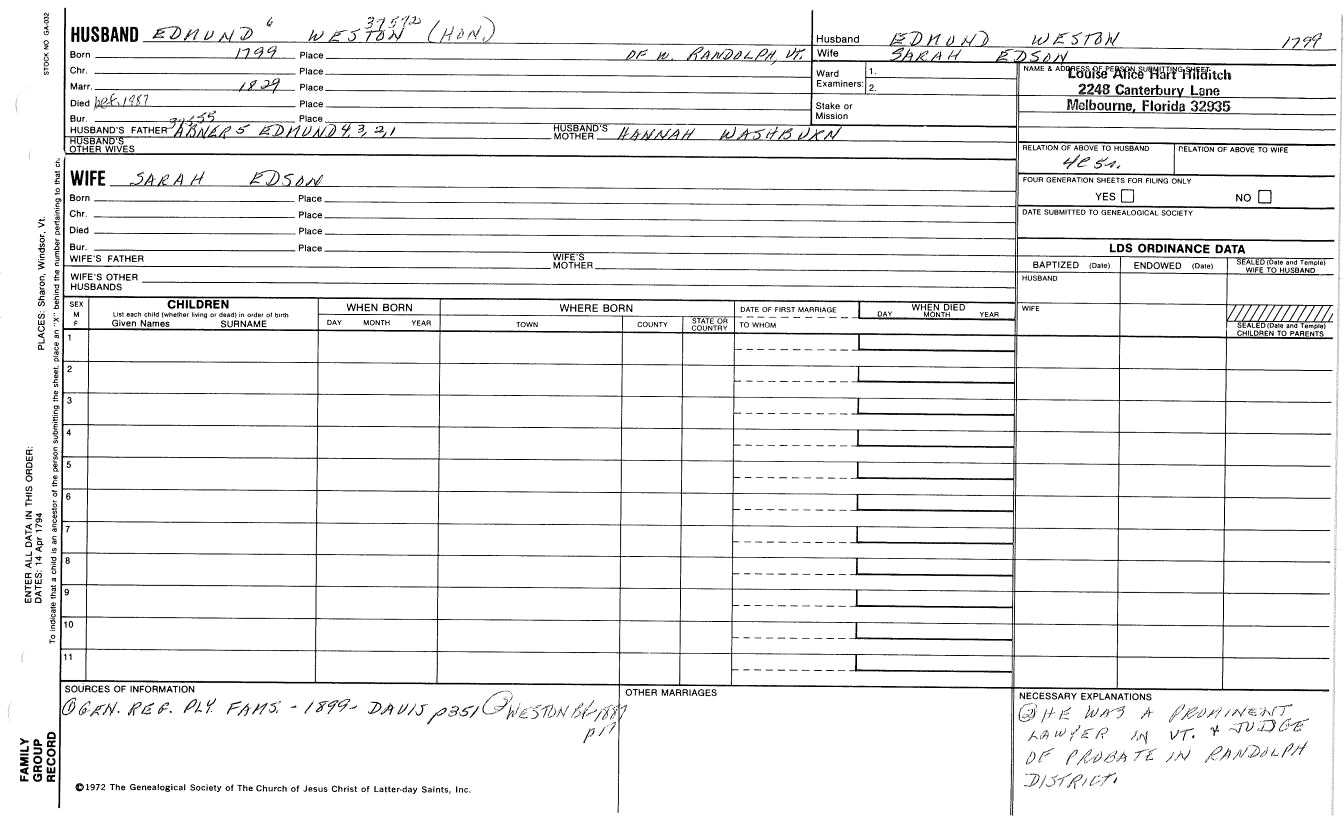 STOCK NO GA-032
HUSBAND EDMUND 6 WESTON 37572 (HON.)
Born 1799 Place OF W. RANDOLPH, VT.
Chr. Place
Marr. 1829 Place
Died bef. 1987 Place
Bur. Place
HUSBAND'S FATHER ABNER 5 EDMUND 4, 3, 2, 1 HUSBAND'S MOTHER HANNAH WASHBURN
HUSBAND'S OTHER WIVES
Husband EDMUND WESTON 1799
Wife SARAH EDSON
Ward Examiners: 1.
2.
Stake or Mission
NAME & ADDRESS OF PERSON SUBMITTING SHEET
Louise Alice Hart Hilditch
2248 Canterbury Lane
Melbourne, Florida 32935
RELATION OF ABOVE TO HUSBAND RELATION OF ABOVE TO WIFE
FOUR GENERATION SHEETS FOR FILING ONLY
YES NO
DATE SUBMITTED TO GENEALOGICAL SOCIETY
WIFE SARAH EDSON
Born Place
Chr. Place
Died Place
Bur. Place
WIFE'S FATHER WIFE'S MOTHER
WIFE'S OTHER HUSBANDS
LDS ORDINANCE DATA
BAPTIZED (Date) ENDOWED (Date) SEALED (Date and Temple) WIFE TO HUSBAND
HUSBAND
WIFE
SEALED (Date and Temple) CHILDREN TO PARENTS
SEX M F
CHILDREN
List each child (whether living or dead) in order of birth
Given Names SURNAME
WHEN BORN
DAY MONTH YEAR
WHERE BORN
TOWN COUNTY STATE OR COUNTRY
DATE OF FIRST MARRIAGE
TO WHOM
WHEN DIED
DAY MONTH YEAR
1
2
3
4
5
6
7
8
9
10
11
SOURCES OF INFORMATION
① GEN. REG. PLY. FAMS. - 1899 - DAVIS p351 ② WESTON Bk-1887
p17
OTHER MARRIAGES
NECESSARY EXPLANATIONS
② HE WAS A PROMINENT
LAWYER IN VT. & JUDGE
OF PROBATE IN RANDOLPH
DISTRICT.
©1972 The Genealogical Society of The Church of Jesus Christ of Latter-day Saints, Inc.
FAMILY
GROUP
RECORD
ENTER ALL DATA IN THIS ORDER:
DATES: 14 Apr 1794
PLACES: Sharon, Windsor, Vt.
To indicate that a child is an ancestor of the person submitting the sheet, place an "X" behind the number pertaining to that ch